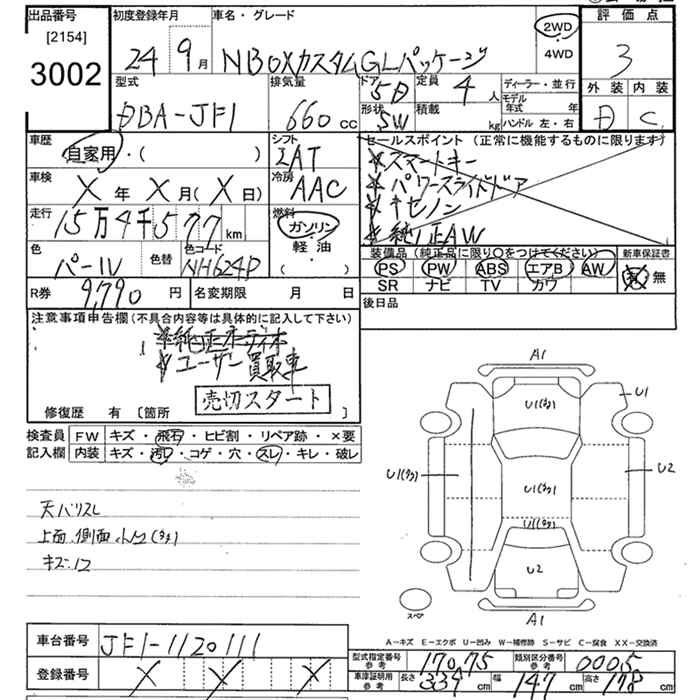 出品番号 初度登録年月 車名・グレード 評価点
[2154]
3002
24 9月 NBOXカスタムGLパッケージ 2WD 4WD 3
型式 排気量 ドア 定員 ディーラー・並行 外装 内装
DBA-JF1 660cc 5D 4人 モデル年式 年
形状 積載 ハンドル 左・右
SW kg C
車歴 シフト セールスポイント (正常に機能するものに限ります)
自家用・( ) IAT
スマートキー
車検 冷房 パワースライドドア
X年 X月(X日) AAC キセノン
走行 燃料 純正AW
15万4千577km ガソリン・軽油・( )
色 色替 色コード 装備品(純正品に限り○をつけてください) 新車保証書
パール NH624P PS PW ABS エアB AW 有 無
SR ナビ TV カワ
R券 9,790円 名変期限 月 日 後日品
注意事項申告欄(不具合内容等は具体的に記入して下さい)
ユーザー買取車
売切スタート
修復歴 有 [箇所 ]
検査員 FW キズ・飛石・ヒビ割・リペア跡・×要
記入欄 内装 キズ・汚れ・コゲ・穴・スレ・キレ・破レ
天バリスレ
上面、側面
A1
U1(多)
U1
U1(多)
U1(多)
U2
U1(多)
U2
スペア
A1
A-キズ E-エクボ U-凹み W-補修跡 S-サビ C-腐食 XX-交換済
車台番号 JF1-1120111
登録番号 X X X
型式指定番号 参考 17075 類別区分番号 参考 0005
車庫証明用 参考 長さ 339cm 幅 147cm 高さ 178cm